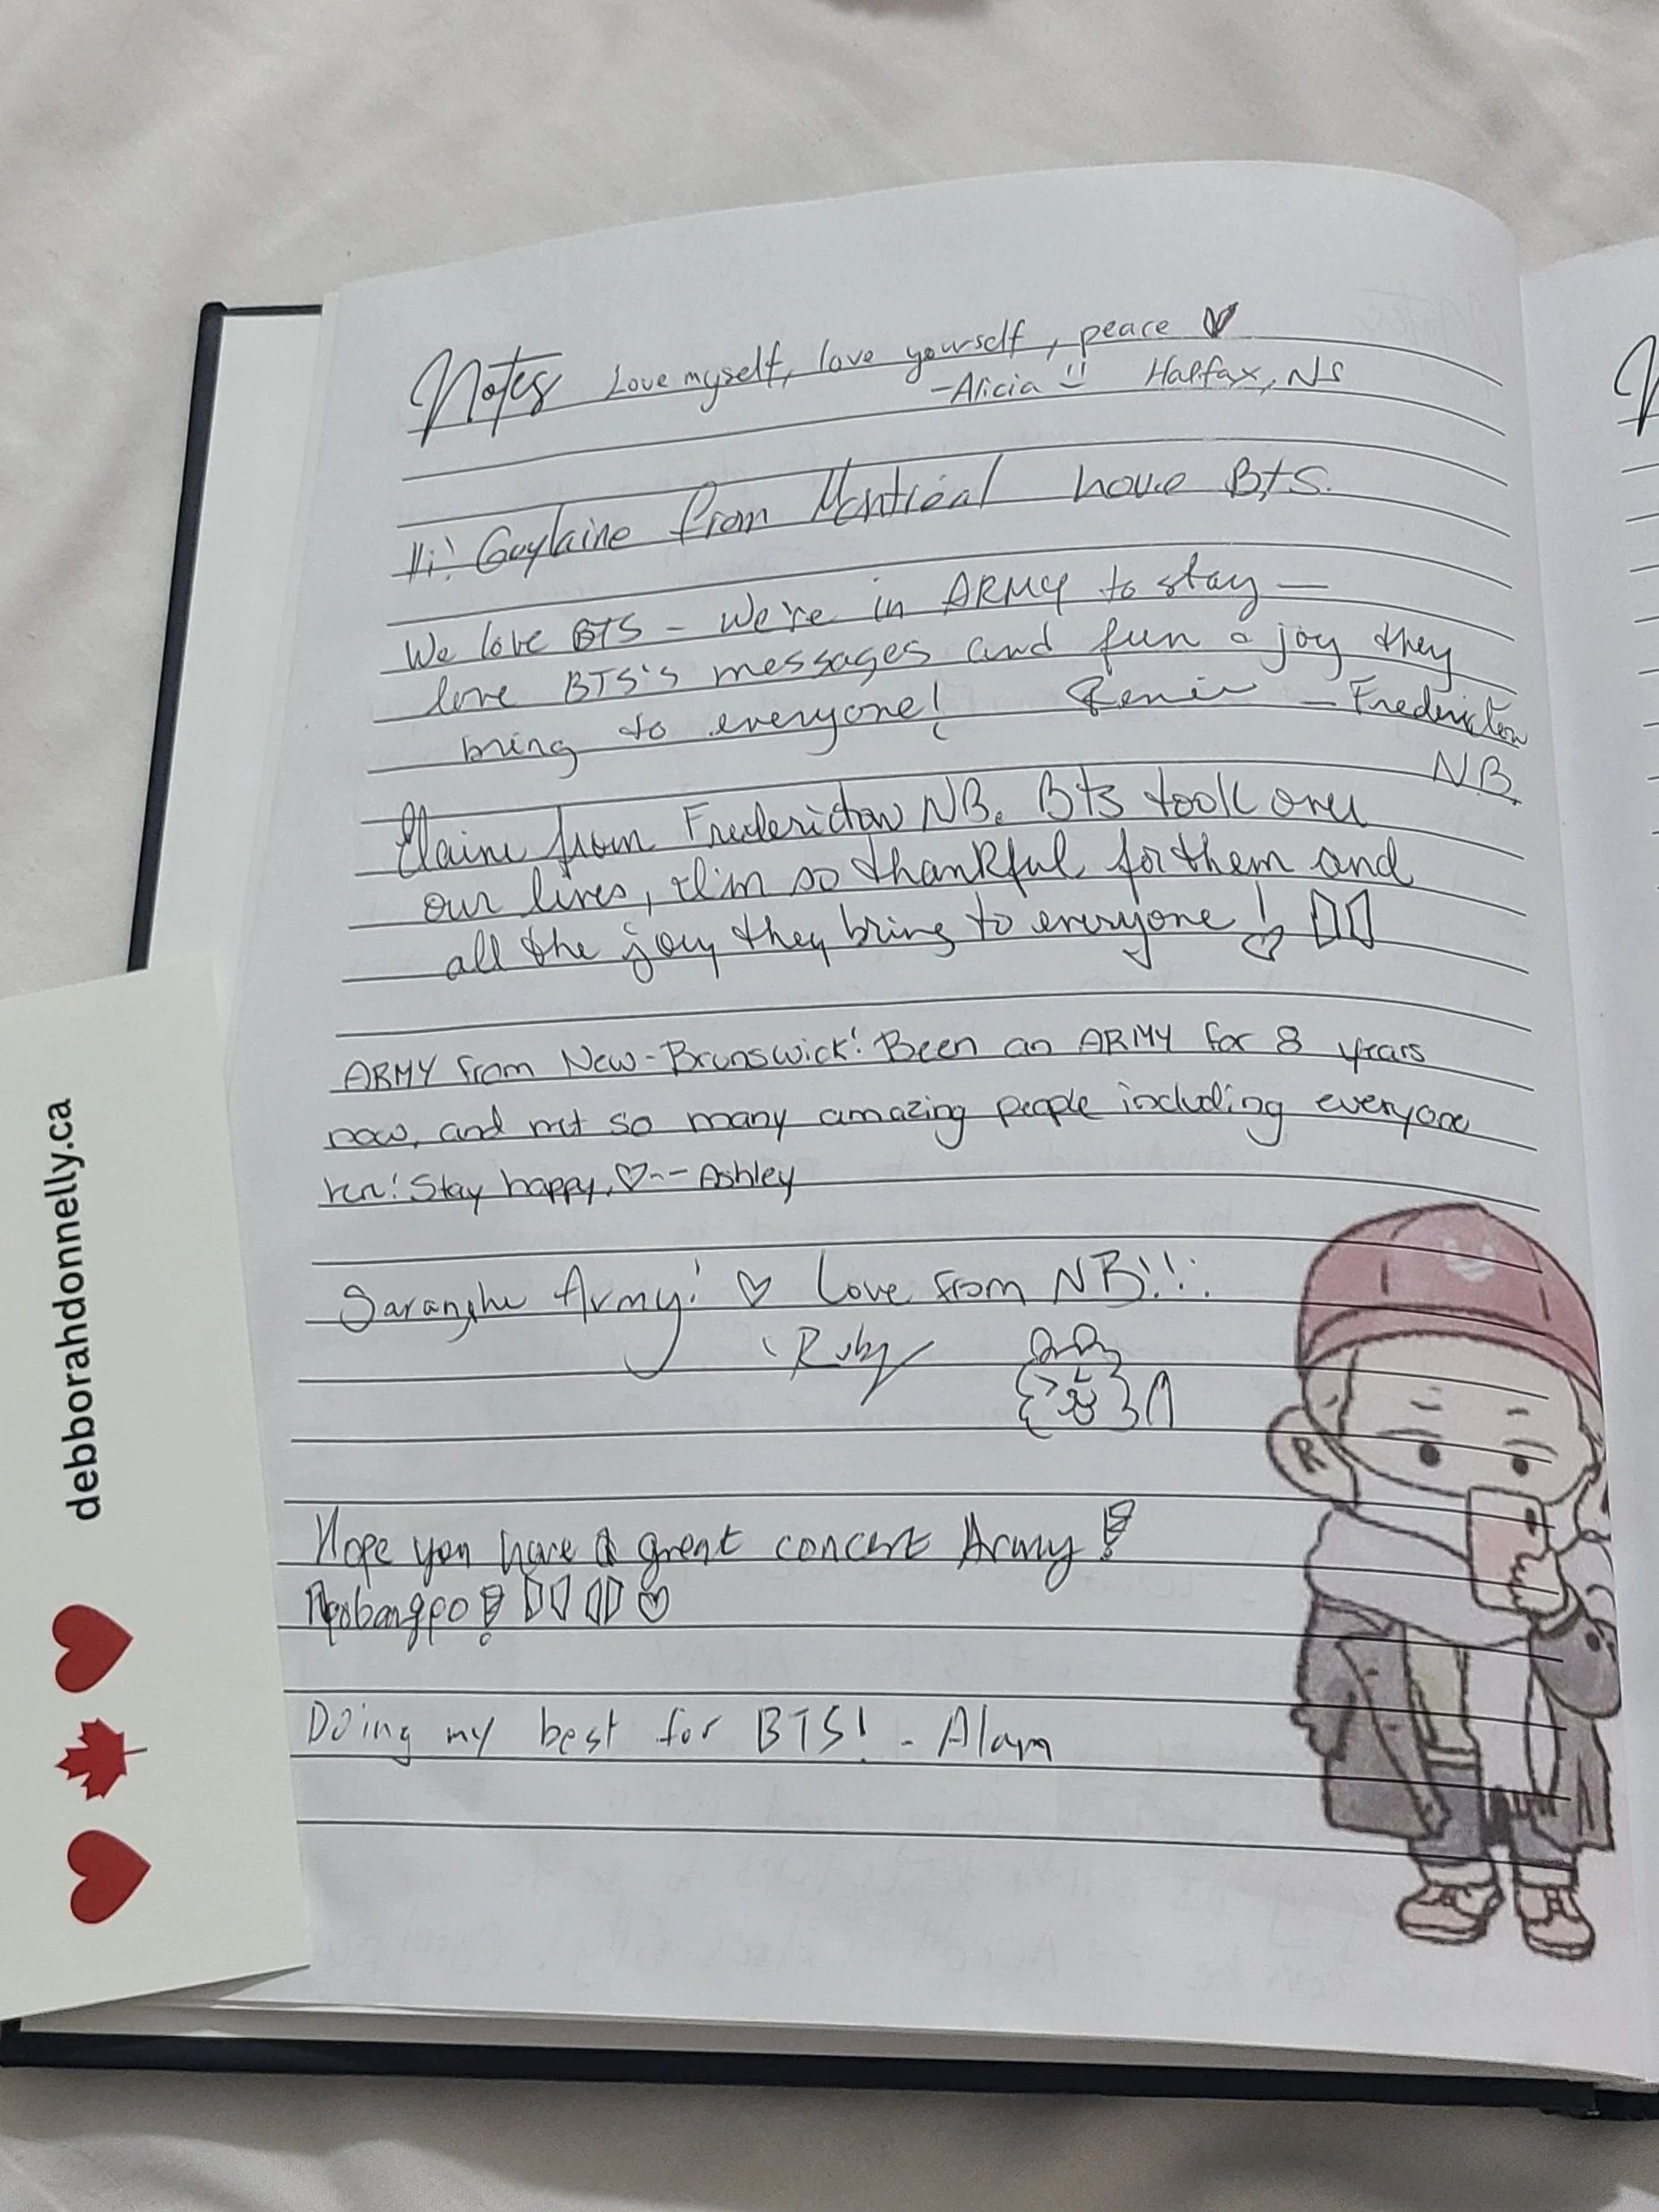 Notes Love myself, love yourself, peace ♥
-Alicia Halifax, NS
Hi! Guylaine from Montréal love BTS.
We love BTS - We're in ARMY to stay —
love BTS's messages and fun & joy they
bring to everyone! — Fredericton
N.B.
Elaine from Fredericton NB. BTS took over
our lives, I'm so thankful for them and
all the joy they bring to everyone! ♡
ARMY from New-Brunswick! Been an ARMY for 8 years
now, and met so many amazing people including everyone
her! Stay happy, ♡-- Ashley
Saranghe Army! ♡ Love from NB!!!
Ruby
Hope you have a great concert Army!
Apobangpo! ♡
Doing my best for BTS! - Alam
debborahdonnelly.ca
R